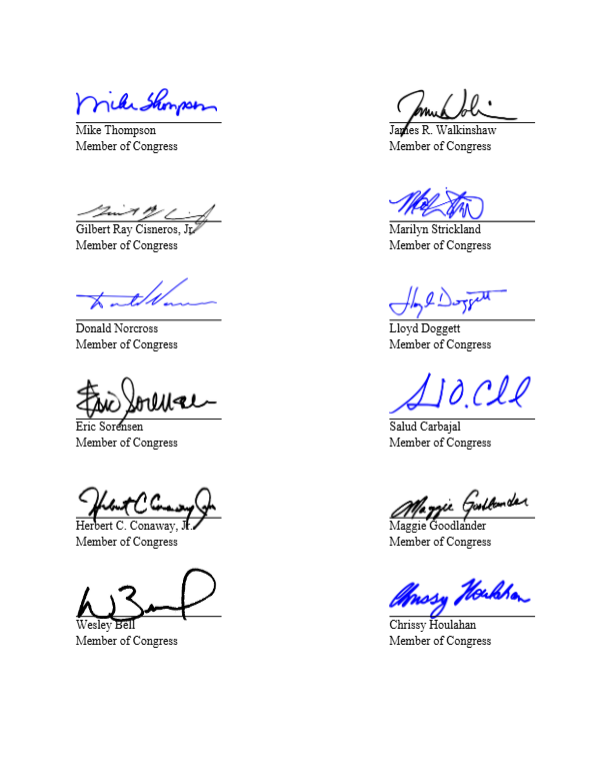 Mike Thompson
Mike Thompson
Member of Congress
James R. Walkinshaw
Member of Congress
Gilbert Ray Cisneros, Jr.
Member of Congress
Marilyn Strickland
Member of Congress
Donald Norcross
Member of Congress
Lloyd Doggett
Lloyd Doggett
Member of Congress
Eric Sorensen
Eric Sorensen
Member of Congress
Salud Carbajal
Member of Congress
Herbert C. Conaway, Jr.
Herbert C. Conaway, Jr.
Member of Congress
Maggie Goodlander
Maggie Goodlander
Member of Congress
Wesley Bell
Member of Congress
Chrissy Houlahan
Chrissy Houlahan
Member of Congress